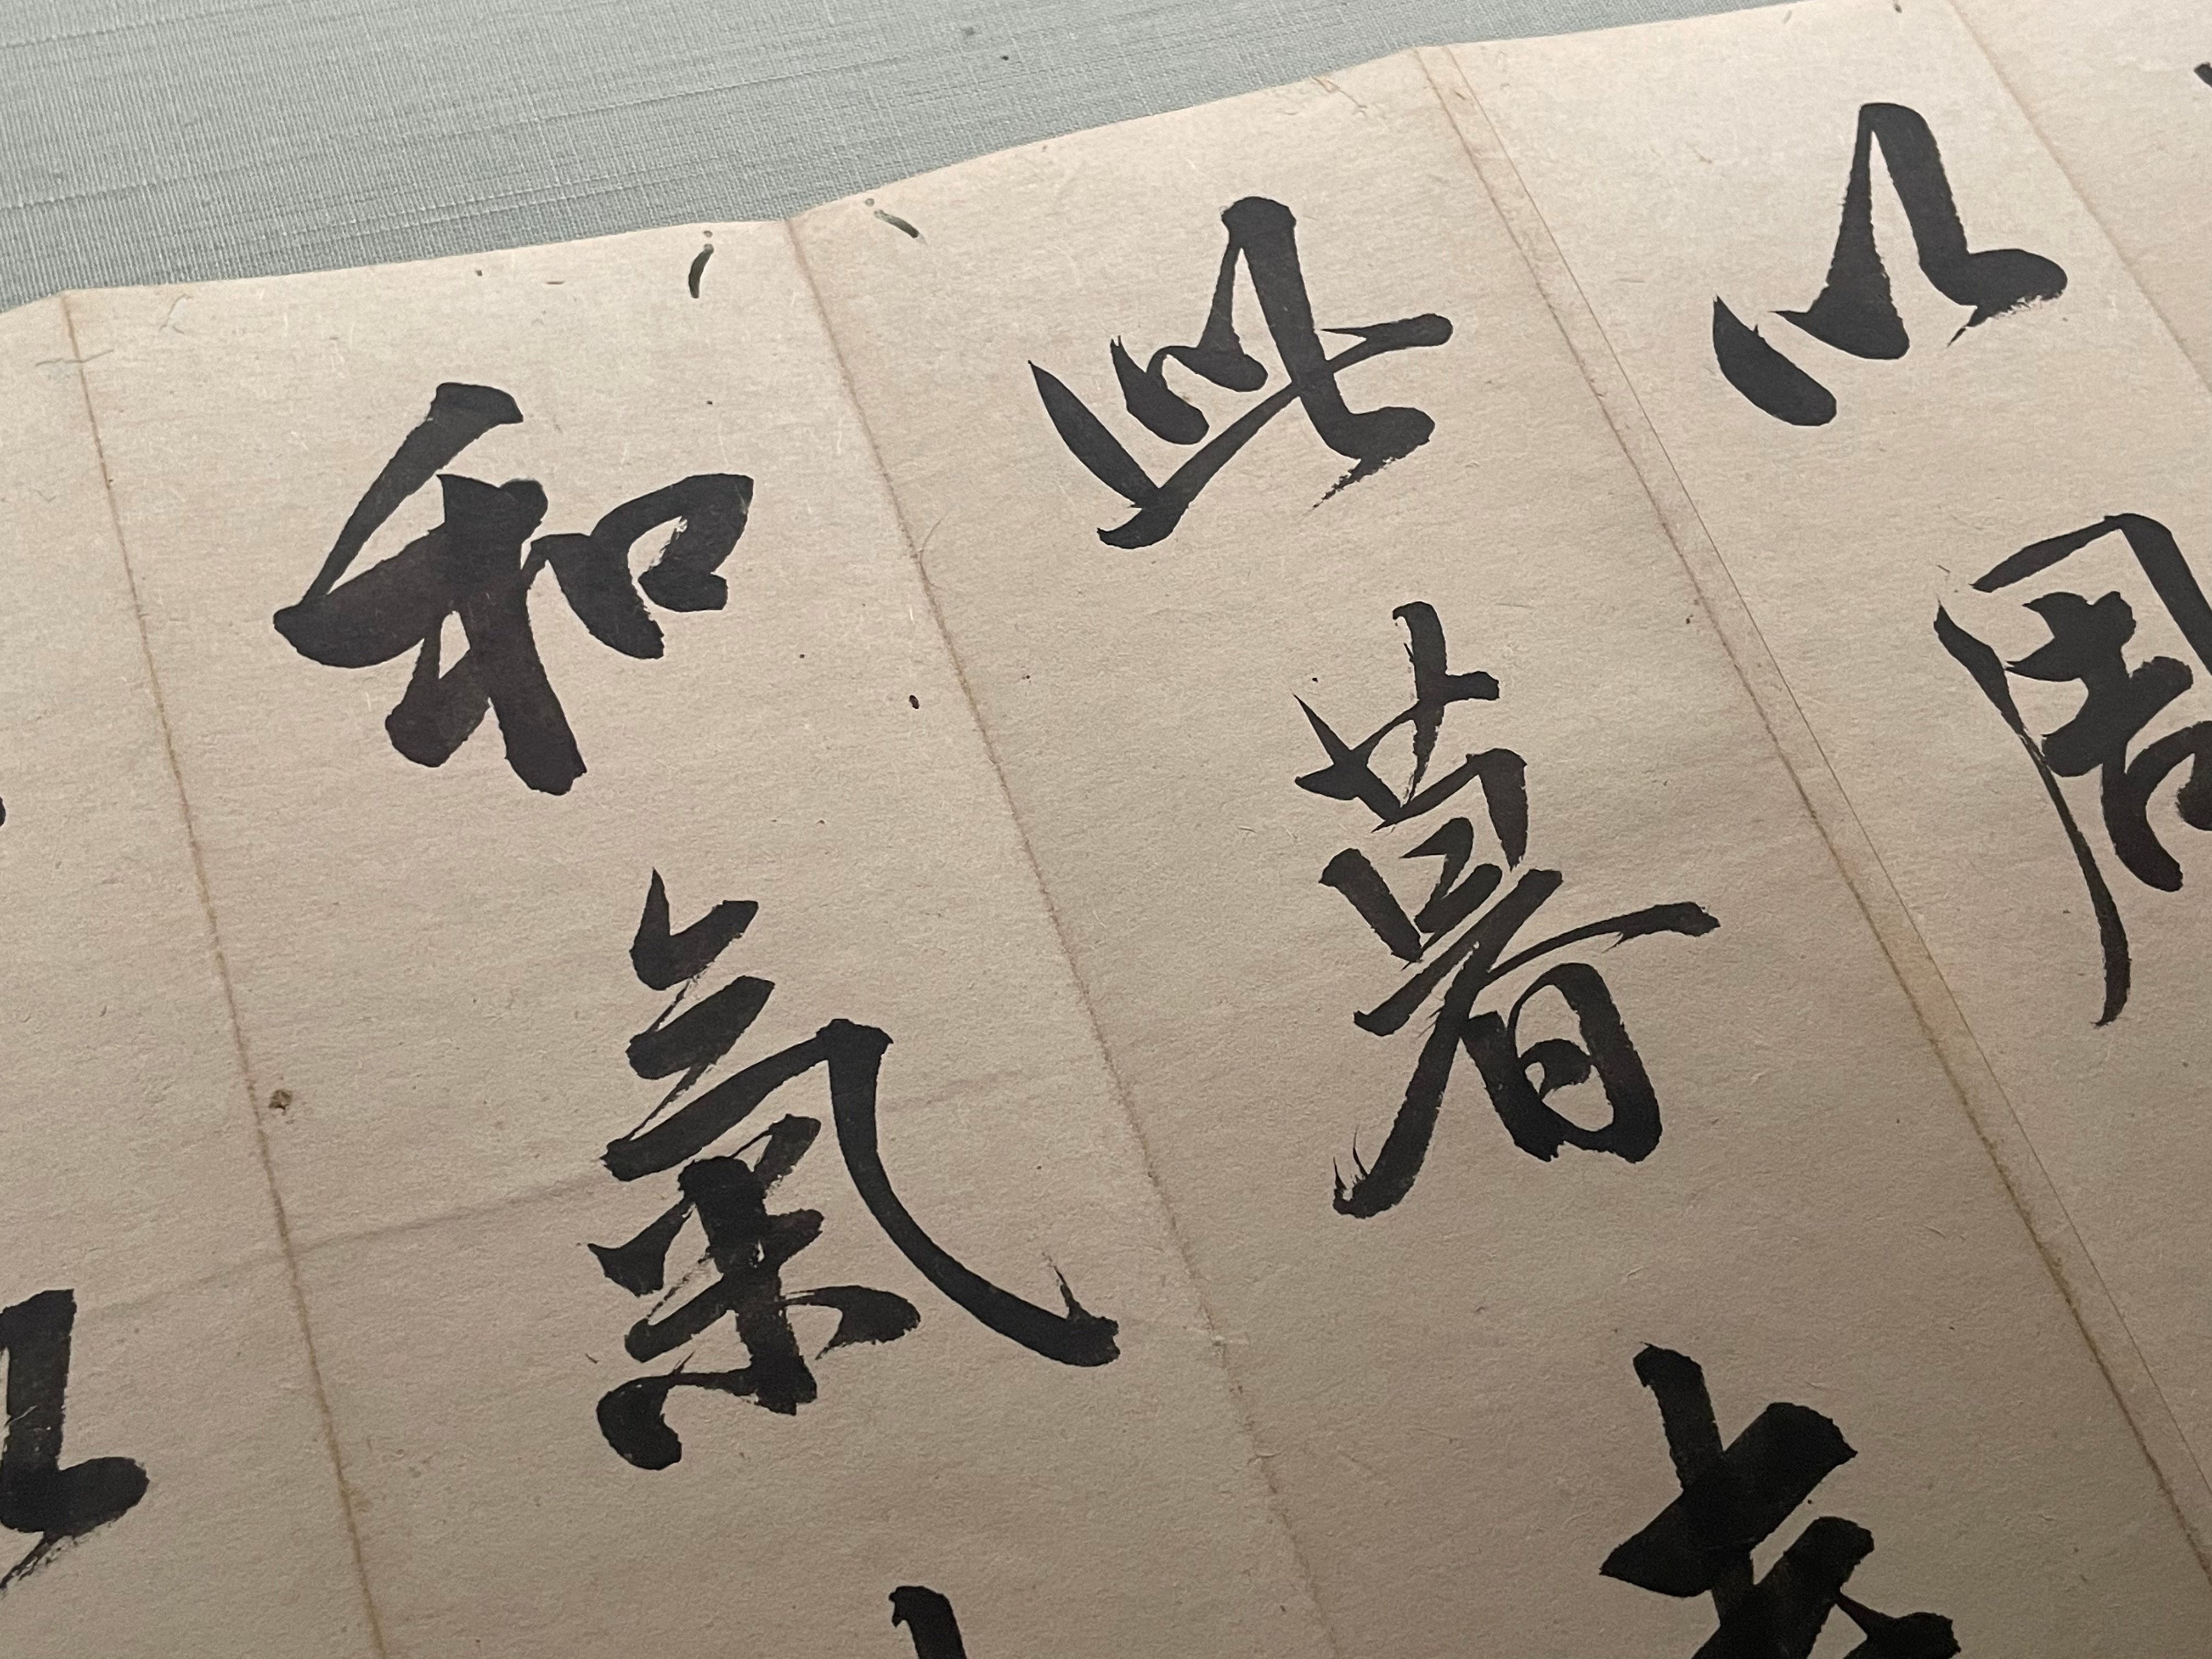 以周
此暮
和氣